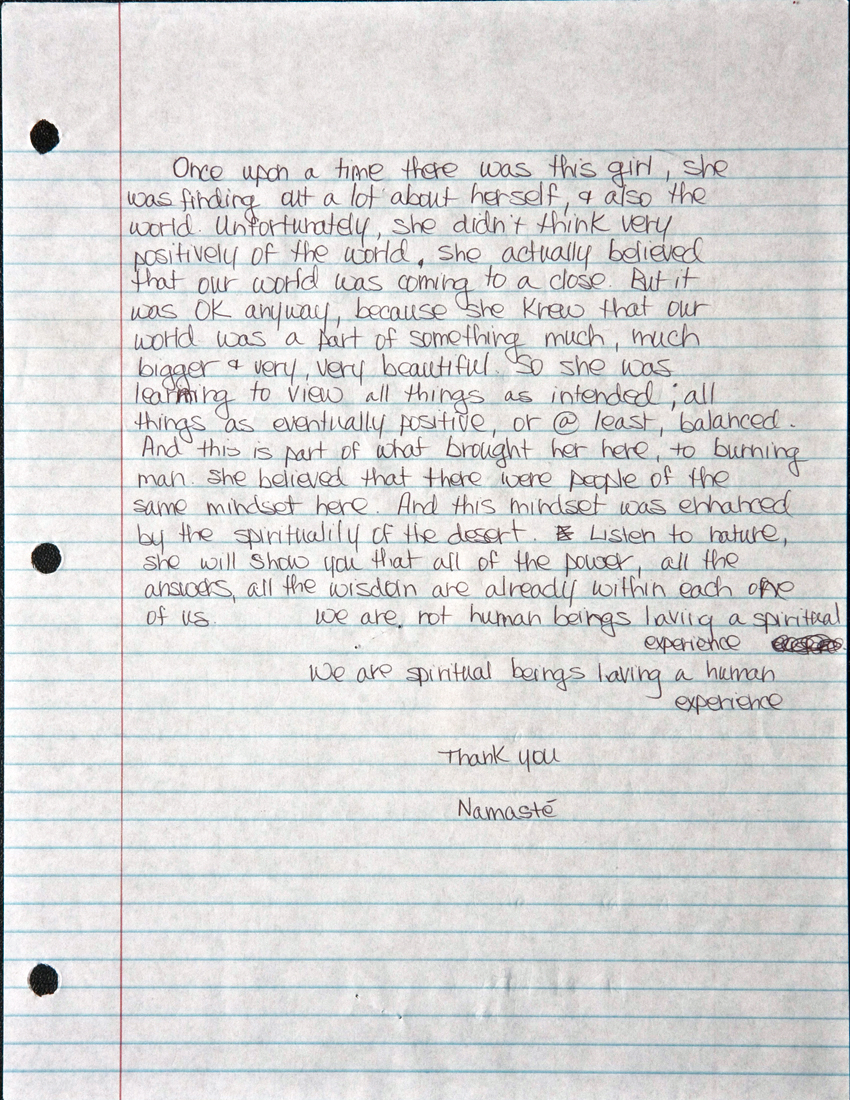 Once upon a time there was this girl, she
was finding out a lot about herself, & also the
world. Unfortunately, she didn't think very
positively of the world. she actually believed
that our world was coming to a close. But it
was OK anyway, because she knew that our
world was a part of something much, much
bigger & very, very beautiful. So she was
learning to view all things as intended; all
things as eventually positive, or @ least, balanced.
And this is part of what brought her here, to burning
man. she believed that there were people of the
same mindset here. And this mindset was enhanced
by the spirituality of the desert. Listen to nature,
she will show you that all of the power, all the
answers, all the wisdom are already within each one
of us. We are not human beings having a spiritual
experience
We are spiritual beings having a human
experience
Thank you
Namasté